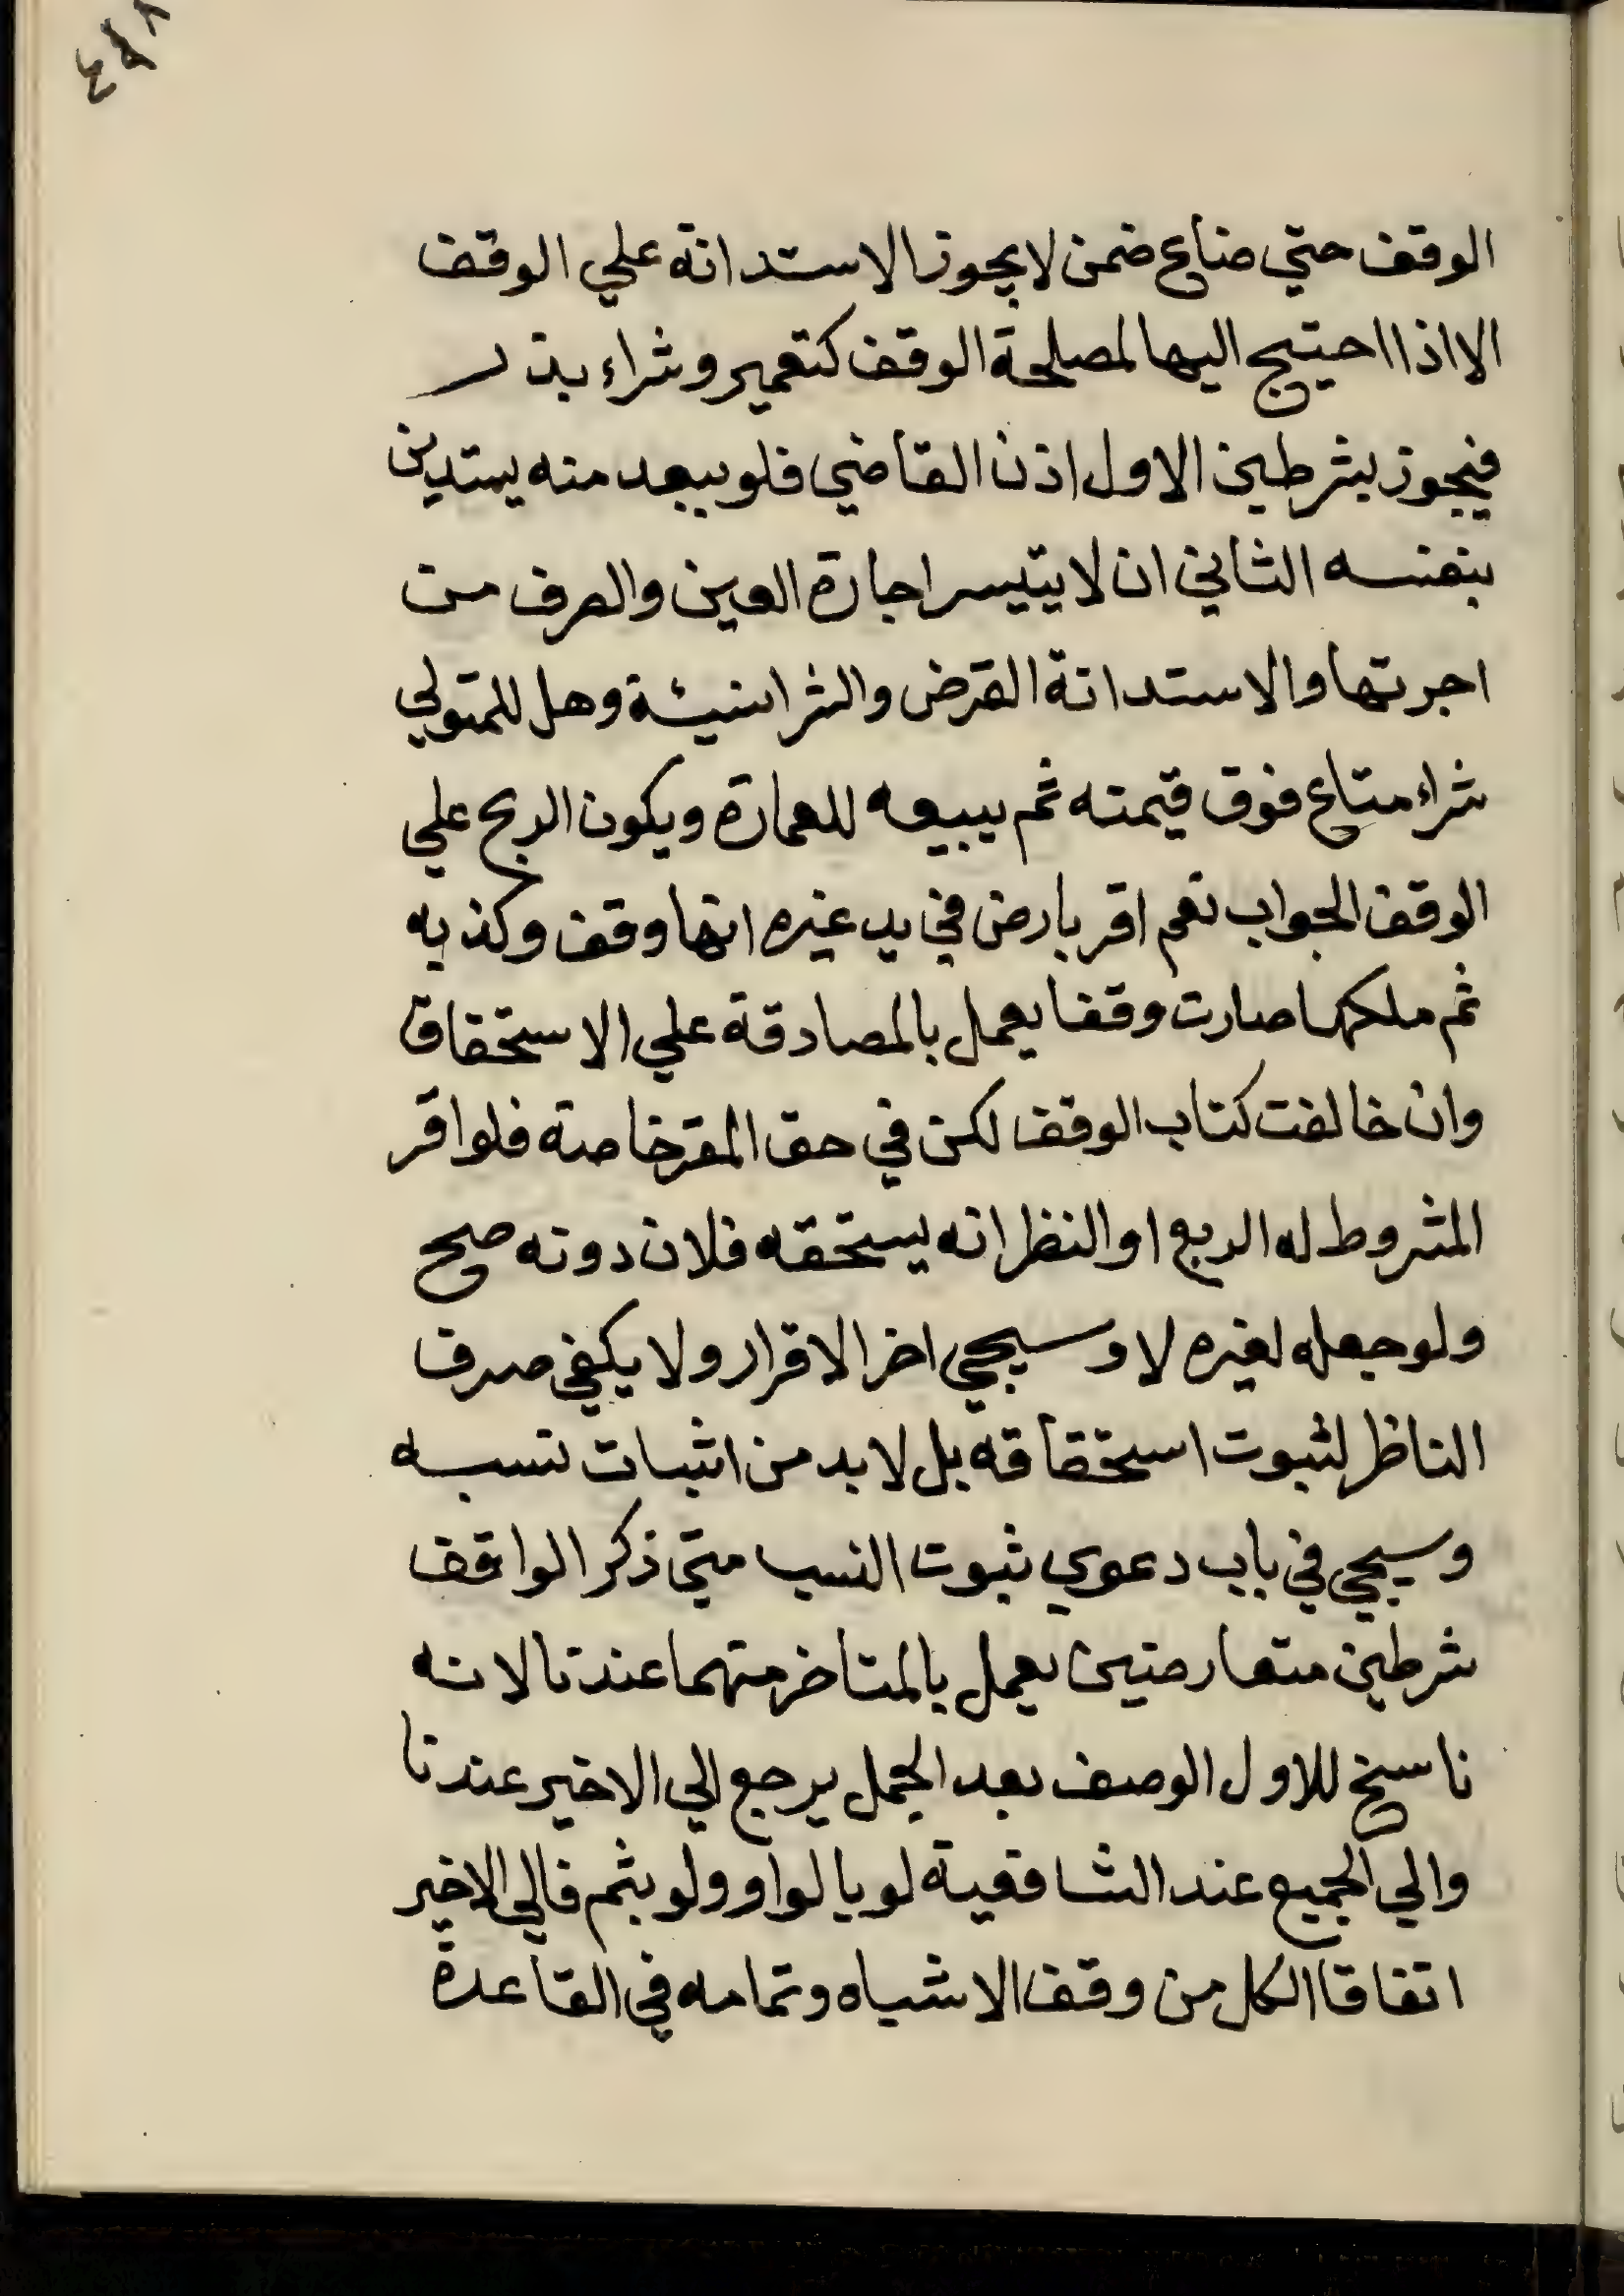 ٤٩٨
الوقف حتي ضاع ضمن لا يجوز الاستدانة علي الوقف
الا اذا احتيج اليها لمصلحة الوقف كتعمير وشراء بذر
فيجوز بشرطين الاول اذن القاضي فلو يبعد منه يستدين
بنفسه الثاني ان لا يتيسر اجارة العين والصرف من
اجرتها والاستدانة القرض والشرا نسيئة وهل للمتولي
شراء متاع فوق قيمته ثم يبيعه للعمارة ويكون الربح علي
الوقف الجواب نعم اقر بارض في يد غيره انها وقف وكذبه
ثم ملكها صارت وقفا يعمل بالمصادقة علي الاستحقاق
وان خالفت كتاب الوقف لكن في حق المقر خاصة فلو اقر
المشروط له الريع او النظر انه يستحقه فلان دونه صح
ولو جعله لغيره لا وسيجي اخر الاقرار ولا يكفي صرف
الناظر لثبوت استحقاقه بل لا بد من اثبات نسبه
وسيجي في باب دعوي ثبوت النسب متي ذكر الواقف
شرطين متعارضين يعمل بالمتاخر منهما عندنا لانه
ناسخ للاول الوصف بعد الجمل يرجع الي الاخير عندنا
والي الجميع عند الشافعية لو بالواو ولو بثم فالي الاخير
اتفاقا الكل من وقف الاشباه وتمامه في القاعدة